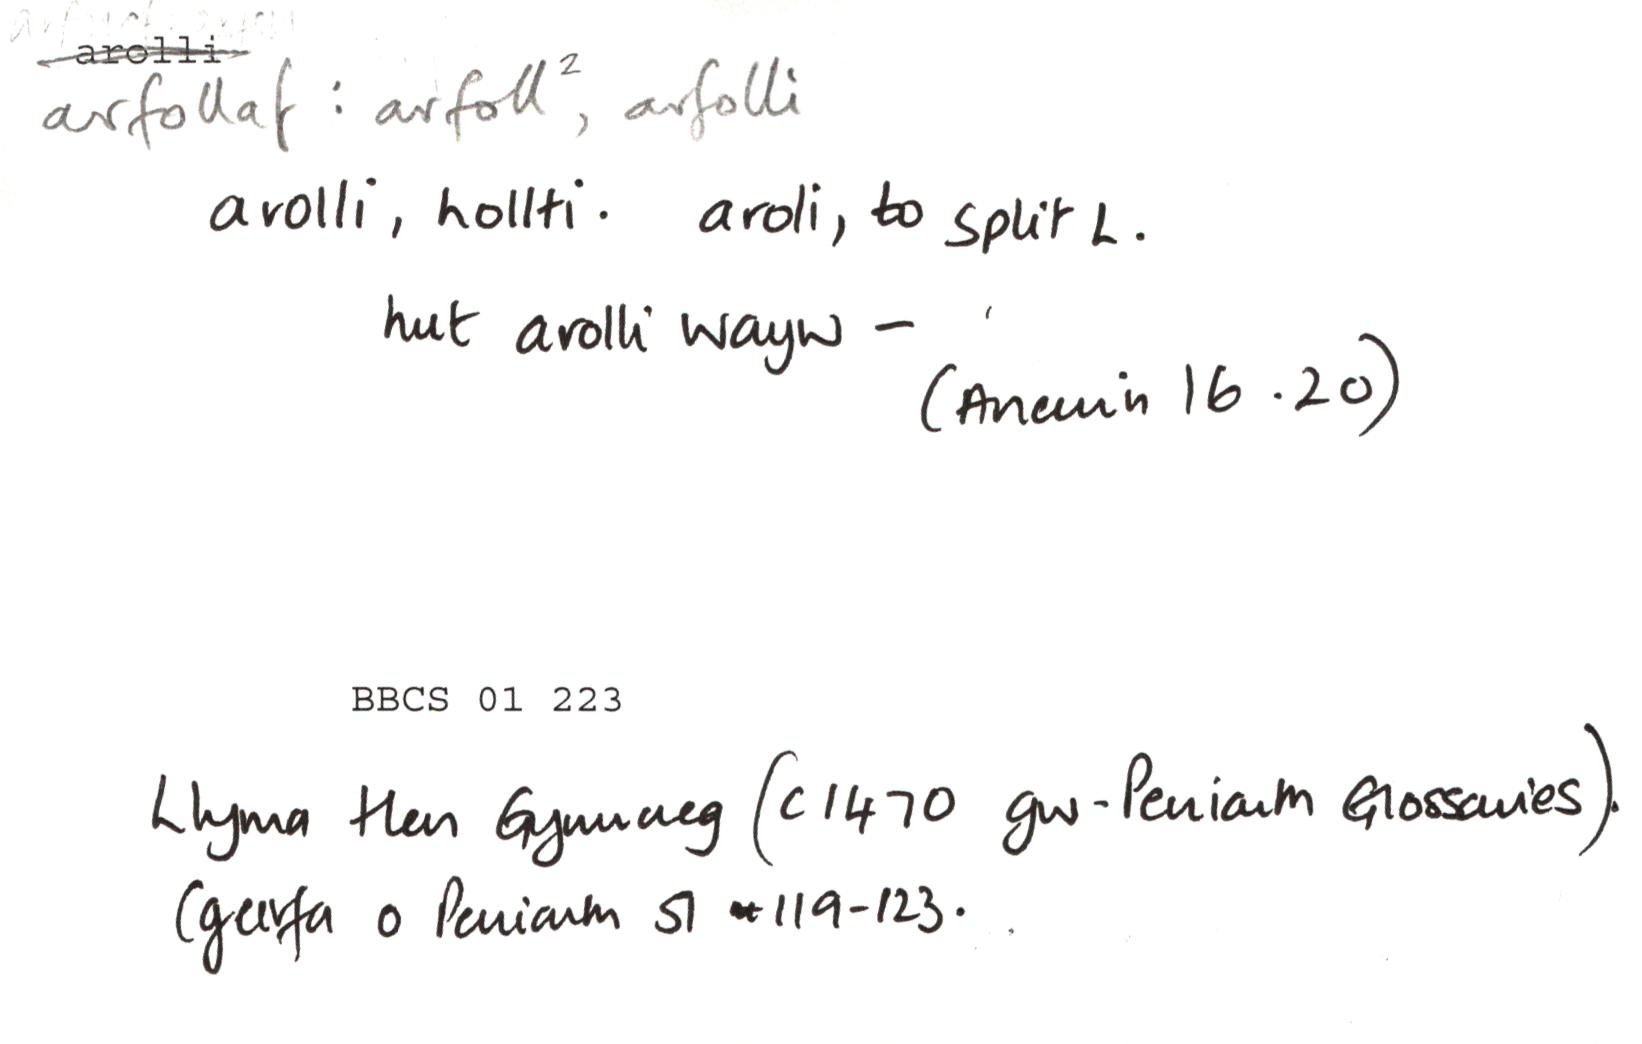 arolli
arfollaf : arfoll², arfolli
arolli, hollti. aroli, to split L.
hut arolli wayw –
(Aneuin 16.20)
BBCS 01 223
Llyma Hen Gymraeg (c1470 gw-Peniarth Glossaries).
(geirfa o Peniarth 51 119-123.